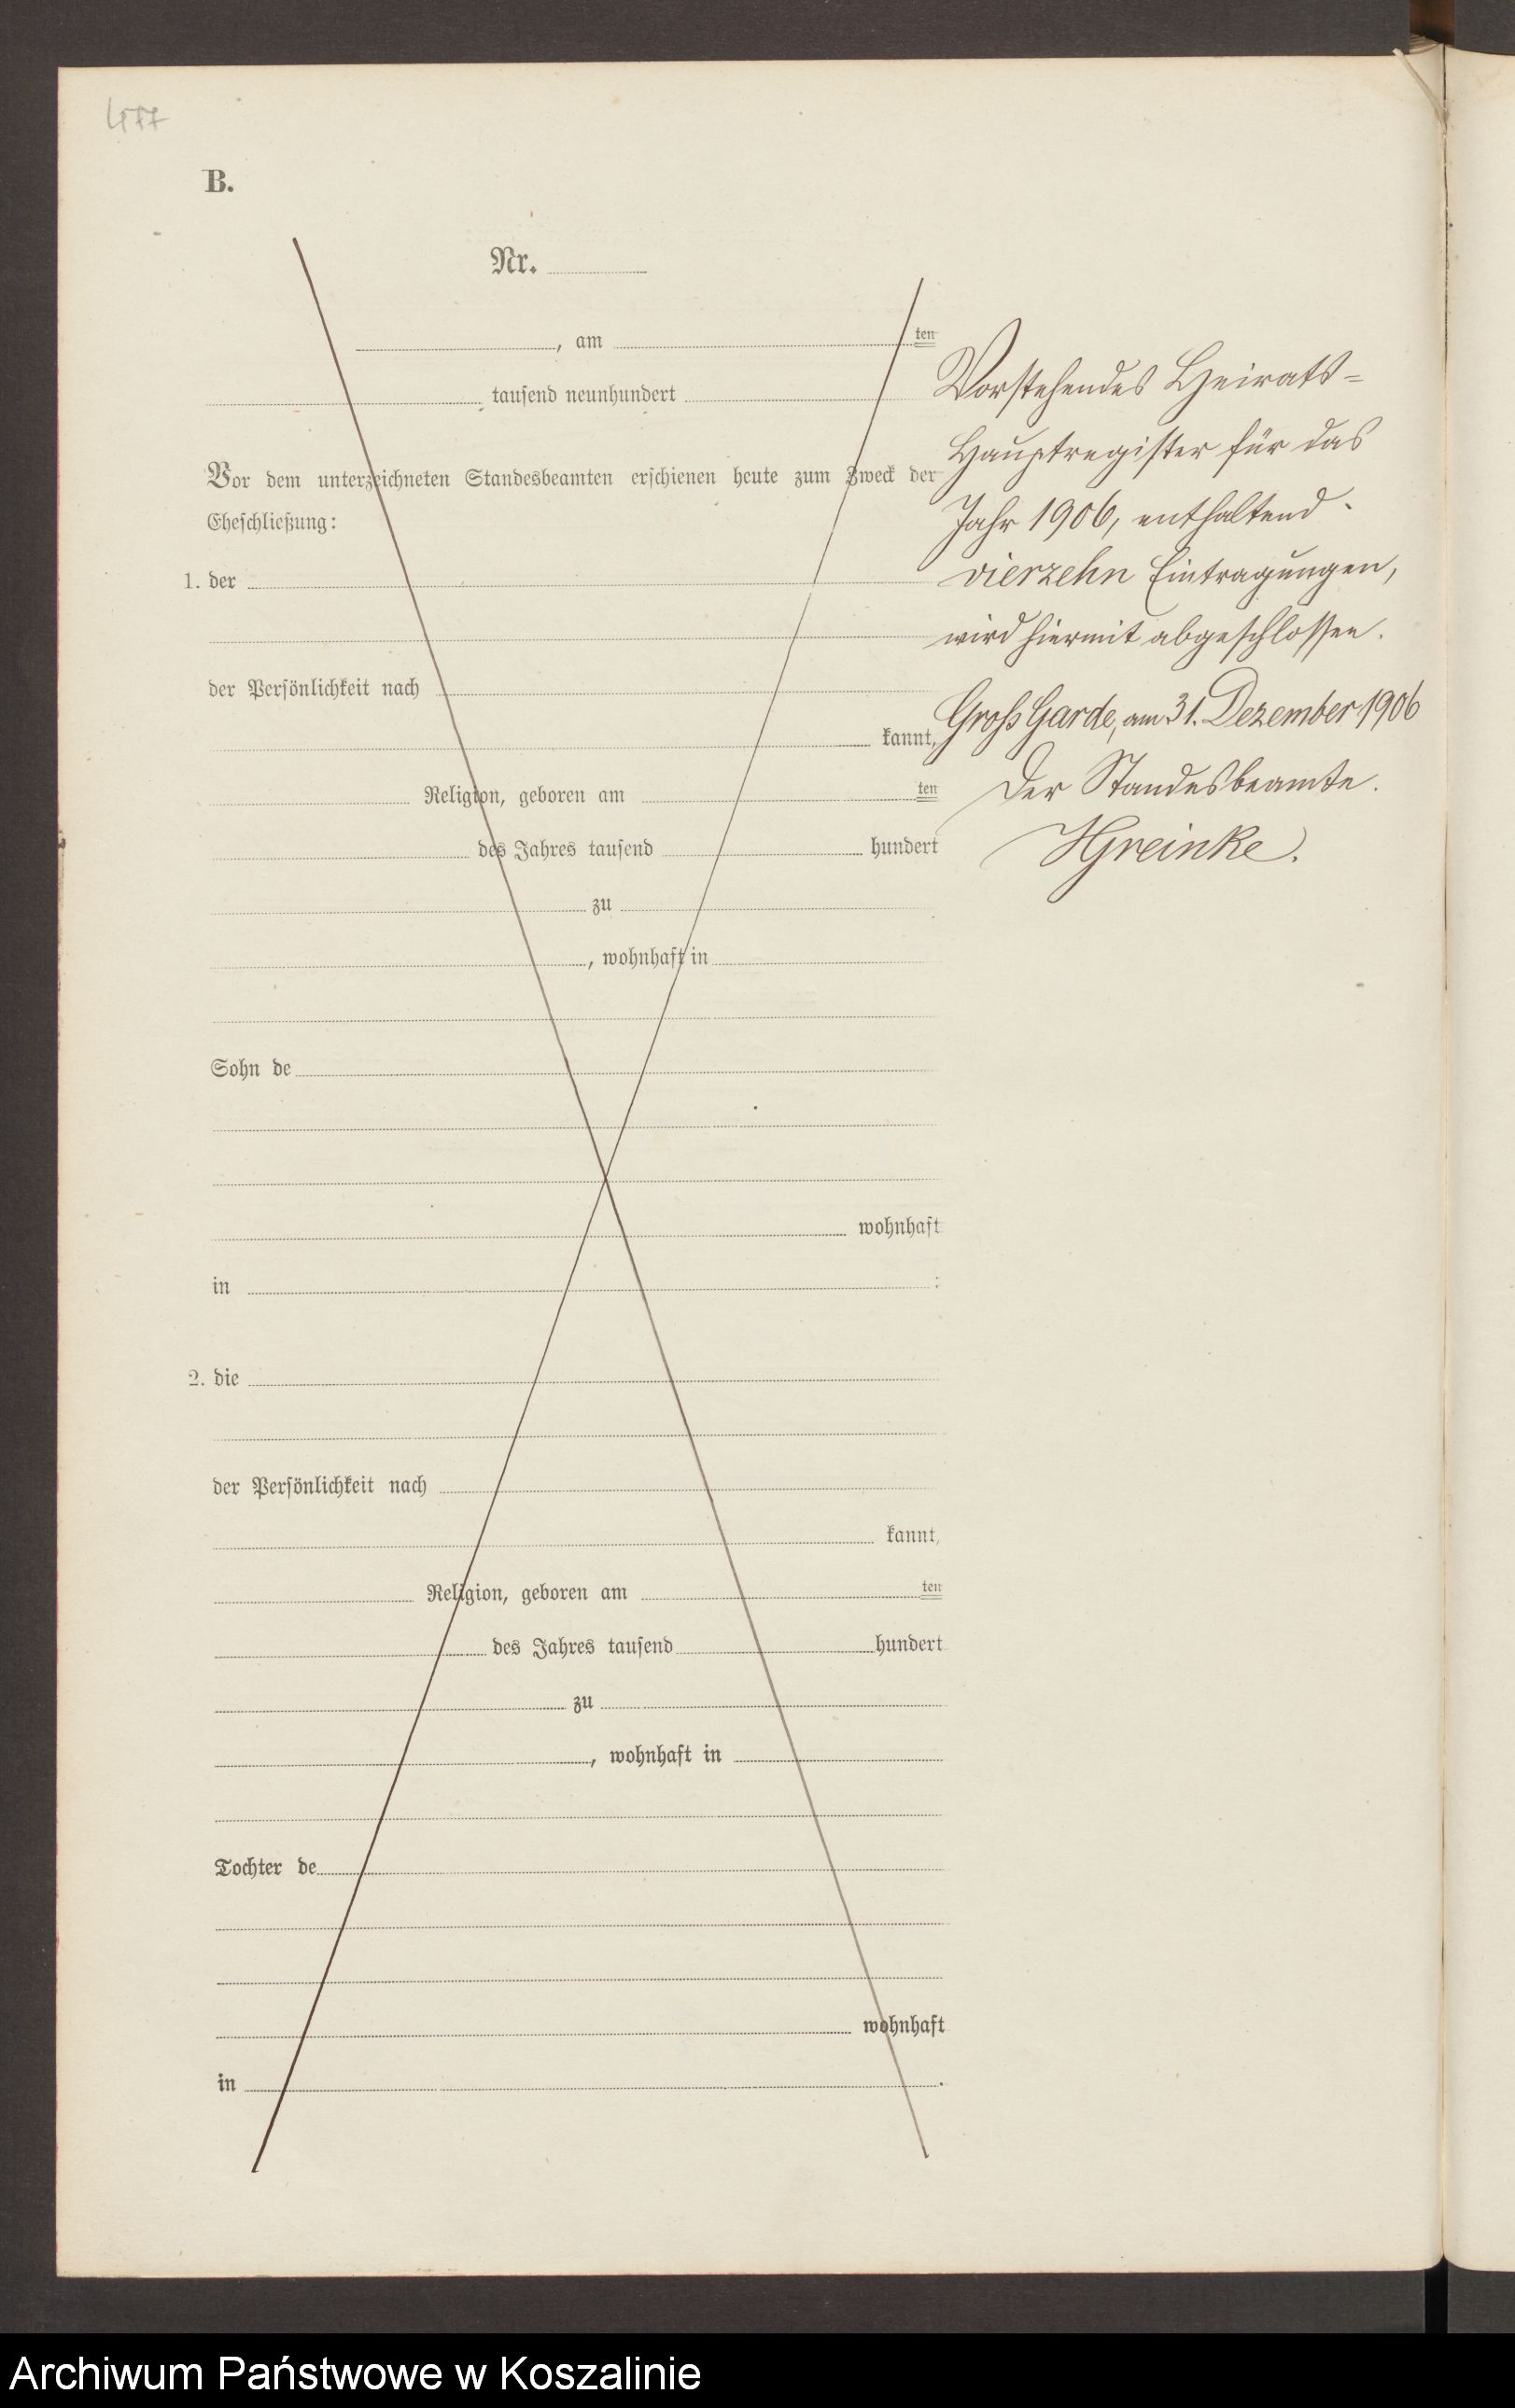 B.
Nr.
, am ten
tausend neunhundert
Vor dem unterzeichneten Standesbeamten erschienen heute zum Zweck der
Eheschließung:
1. der
der Persönlichkeit nach
kannt,
Religion, geboren am ten
des Jahres tausend hundert
zu
, wohnhaft in
Sohn de
wohnhaft
in :
2. die
der Persönlichkeit nach
kannt,
Religion, geboren am ten
des Jahres tausend hundert
zu
, wohnhaft in
Tochter de
wohnhaft
in .
Vorstehendes Heirats-
Hauptregister für das
Jahr 1906, enthaltend
vierzehn Eintragungen,
wird hiermit abgeschlossen.
Groß Garde, am 31. Dezember 1906
Der Standesbeamte.
Archiwum Państwowe w Koszalinie